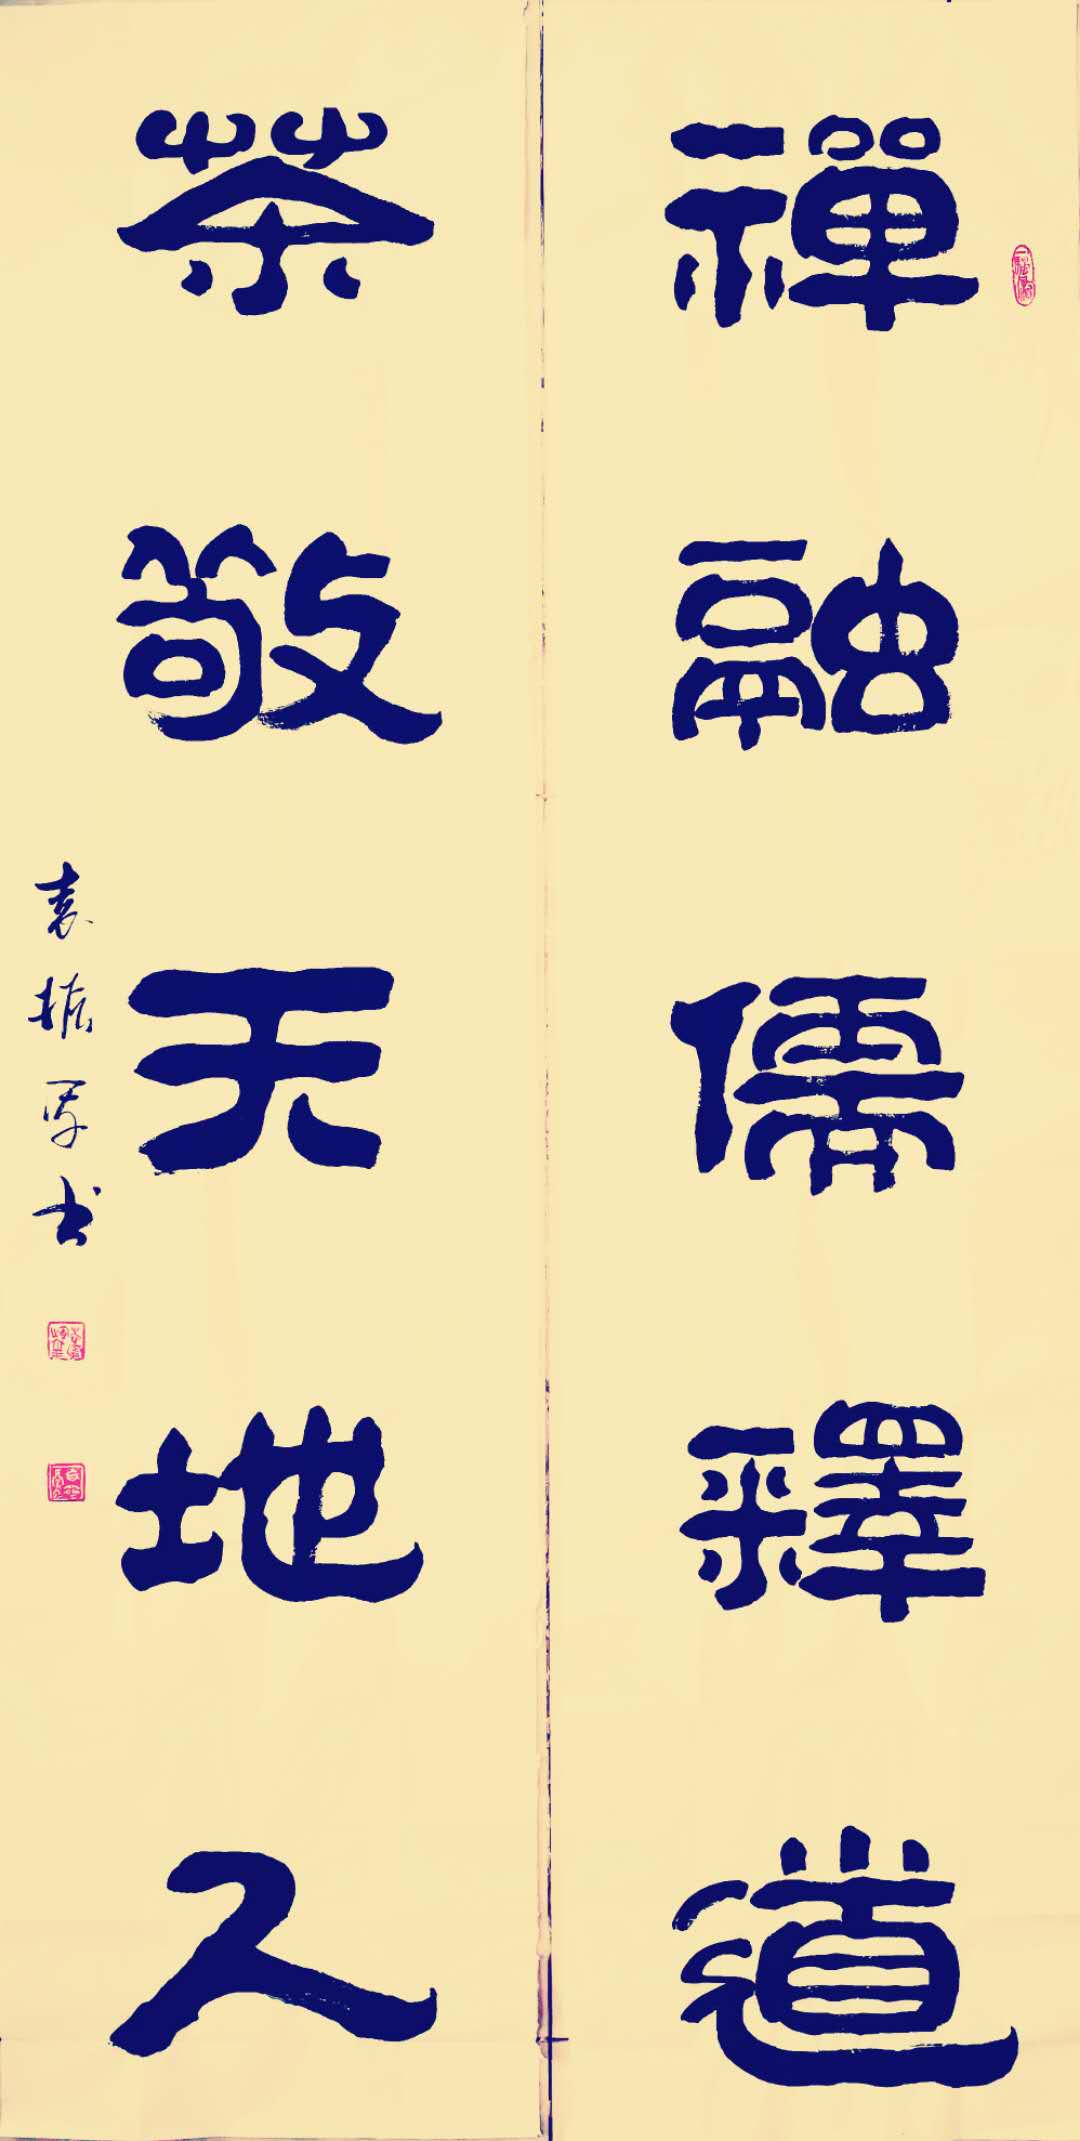 禪融儒釋道
茶敬天地人
袁振军书